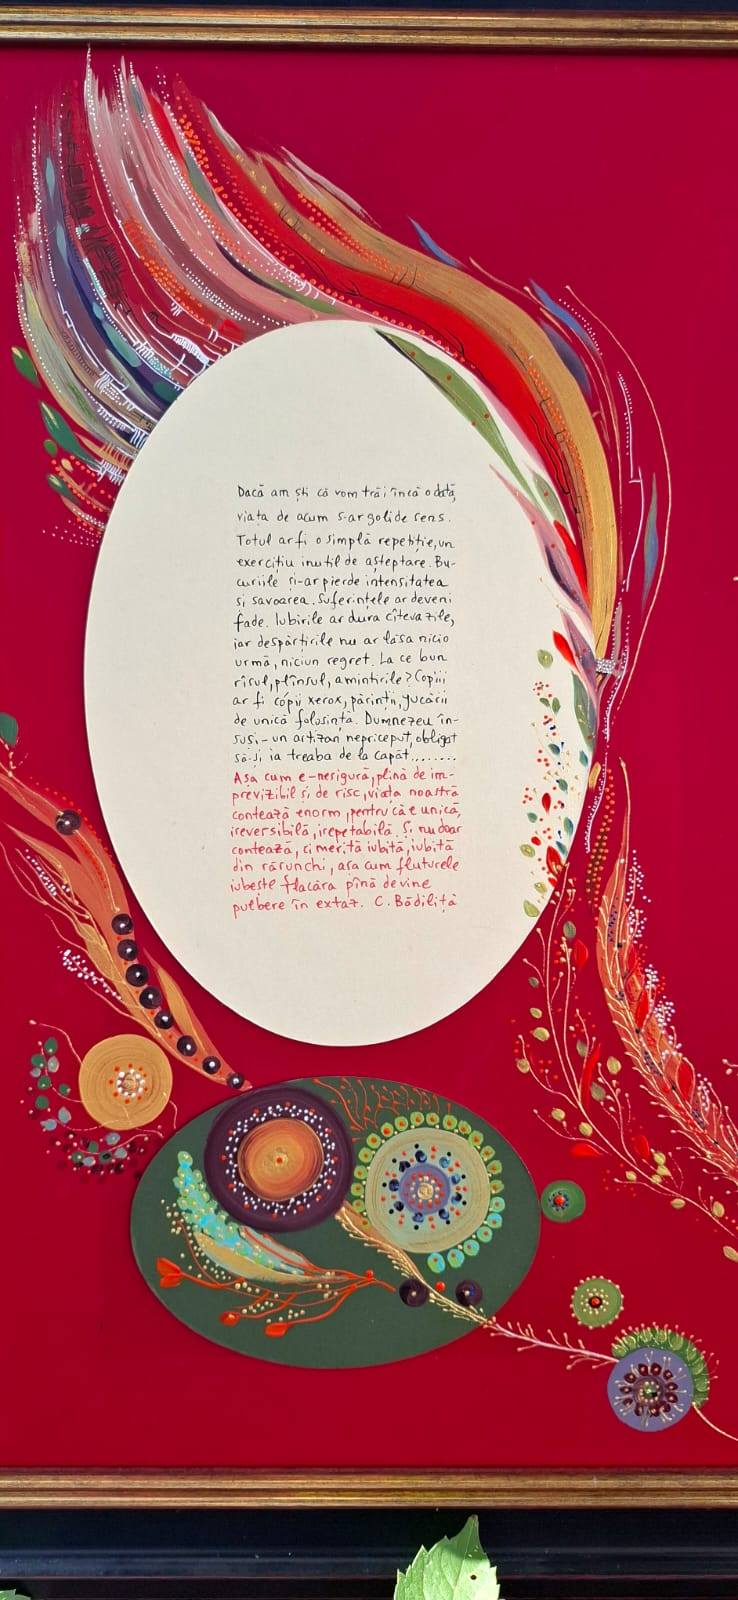 Dacă am ști că vom trăi încă o dată,
viața de acum s-ar goli de sens.
Totul ar fi o simplă repetiție, un
exercițiu inutil de așteptare. Bu-
curiile și-ar pierde intensitatea
și savoarea. Suferințele ar deveni
fade. Iubirile ar dura cîteva zile,
iar despărțirile nu ar lăsa nicio
urmă, niciun regret. La ce bun
rîsul, plînsul, amintirile? Copiii
ar fi cópii xerox, părinții, jucării
de unică folosință. Dumnezeu în-
suși - un artizan nepriceput, obligat
să-și ia treaba de la capăt........
Așa cum e - nesigură, plină de im-
previzibil și de risc, viața noastră
contează enorm, pentru că e unică,
ireversibilă, irepetabilă. Și nu doar
contează, ci merită iubită, iubită
din rărunchi, așa cum fluturele
iubește flacăra pînă devine
pulbere în extaz. C. Bădiliță